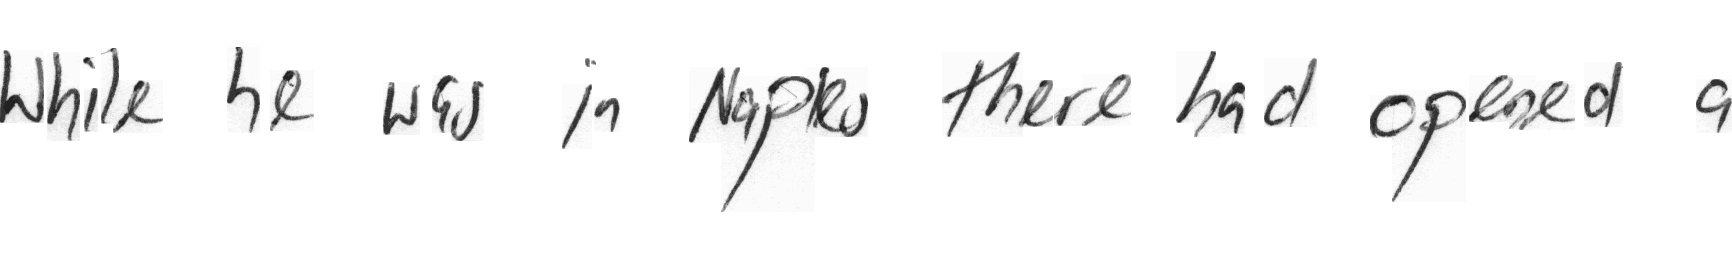 While he was in Naples there had opened a